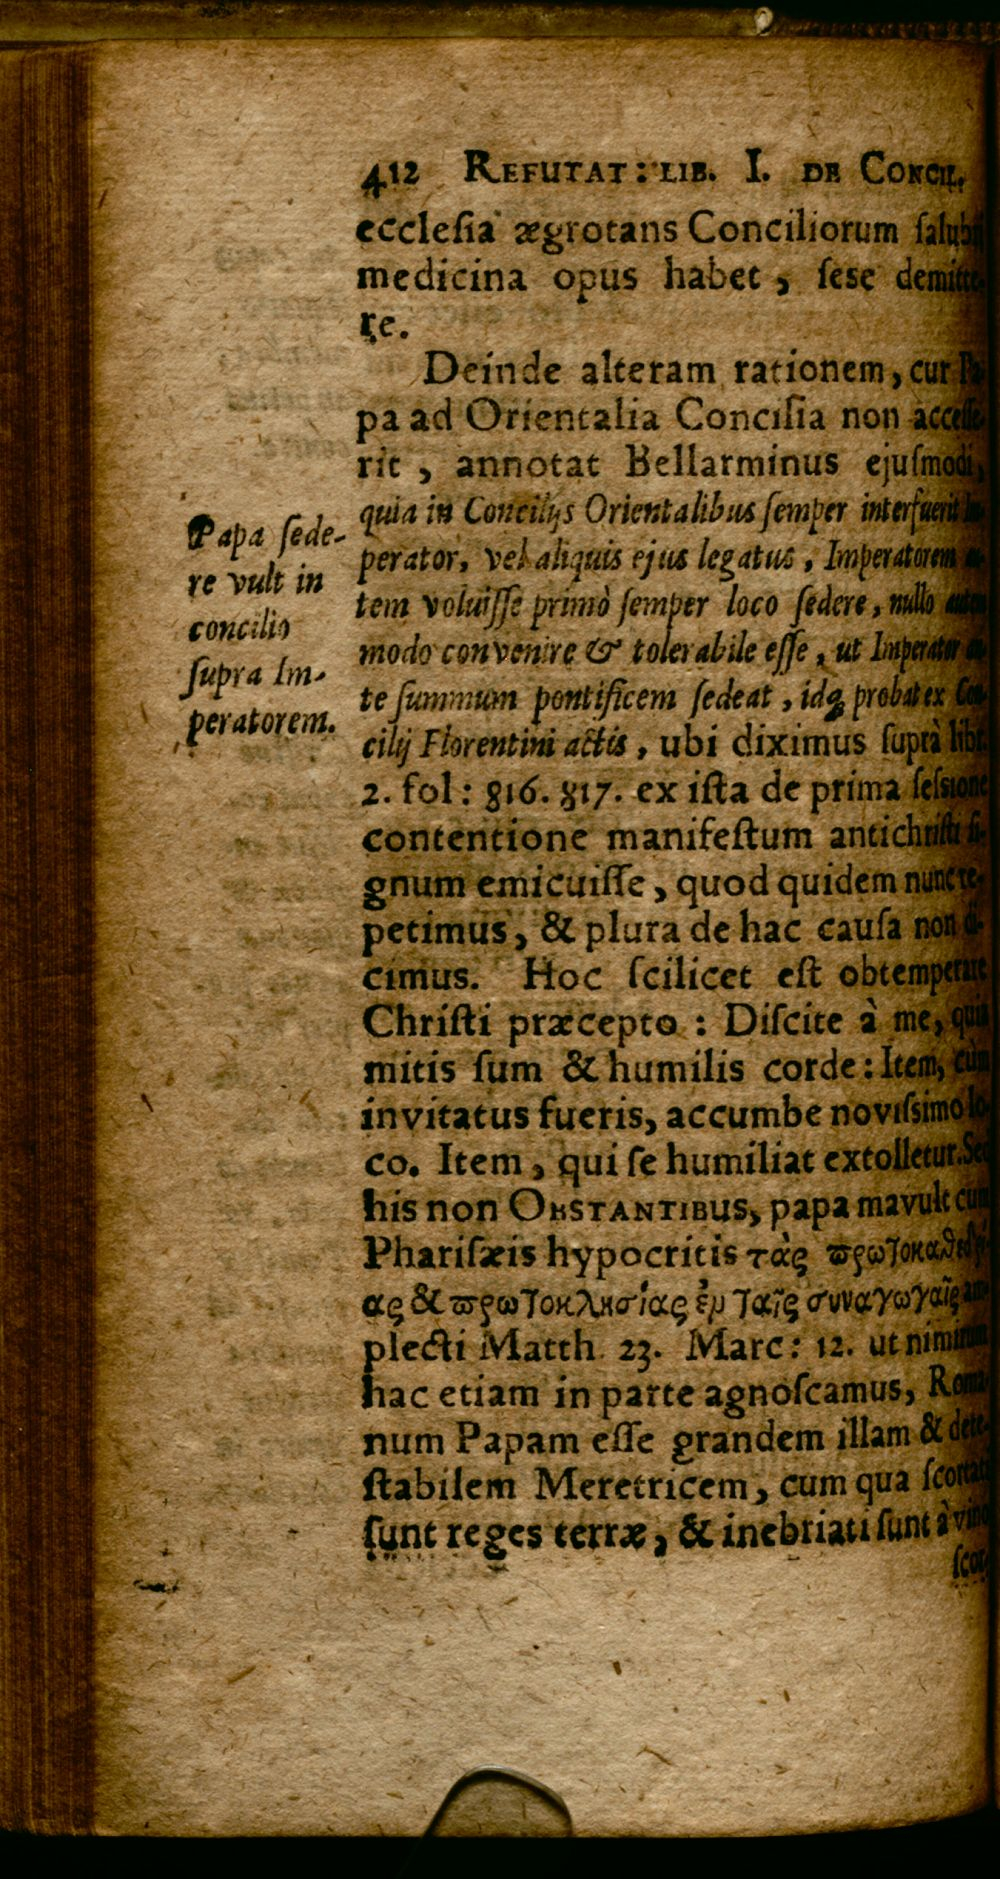 412 REFUTAT: LIB. I. DE CONCIL.
eccleſia ægrotans Conciliorum ſalubri
medicina opus habet, ſeſe demitte-
re.
Deinde alteram rationem, cur Pa-
pa ad Orientalia Concilia non acceſſe-
rit, annotat Bellarminus ejuſmodi,
quia in Concilijs Orientalibus ſemper interfuerit Im-
perator, vel aliquis ejus legatus, Imperatorem au-
tem voluiſſe primò ſemper loco ſedere, nullo autem
modo convenire & tolerabile eſſe, ut Imperator an-
te ſummum pontificem ſedeat, idq; probat ex Con-
cilij Florentini actis, ubi diximus ſuprà libr.
2. fol: 816. 817. ex iſta de prima ſeſsione
contentione manifeſtum antichriſti ſi-
gnum emicuiſſe, quod quidem nunc re-
petimus, & plura de hac cauſa non di-
cimus. Hoc ſcilicet eſt obtemperare
Chriſti præcepto: Diſcite à me, quia
mitis ſum & humilis corde: Item, cùm
invitatus fueris, accumbe noviſsimo lo-
co. Item, qui ſe humiliat extolletur. Sed
his non OBSTANTIBUS, papa mavult cum
Phariſæis hypocritis τὰς πρωτοκαθεδρί-
ας & πρωτοκλησίας ἐν ταῖς συναγωγαῖς am-
plecti Matth. 23. Marc: 12. ut nimirum
hac etiam in parte agnoſcamus, Roma-
num Papam eſſe grandem illam & dete-
ſtabilem Meretricem, cum qua ſcortati
ſunt reges terræ, & inebriati ſunt à vino
ſcor-
Papa ſede-
re vult in
concilio
ſupra Im-
peratorem.